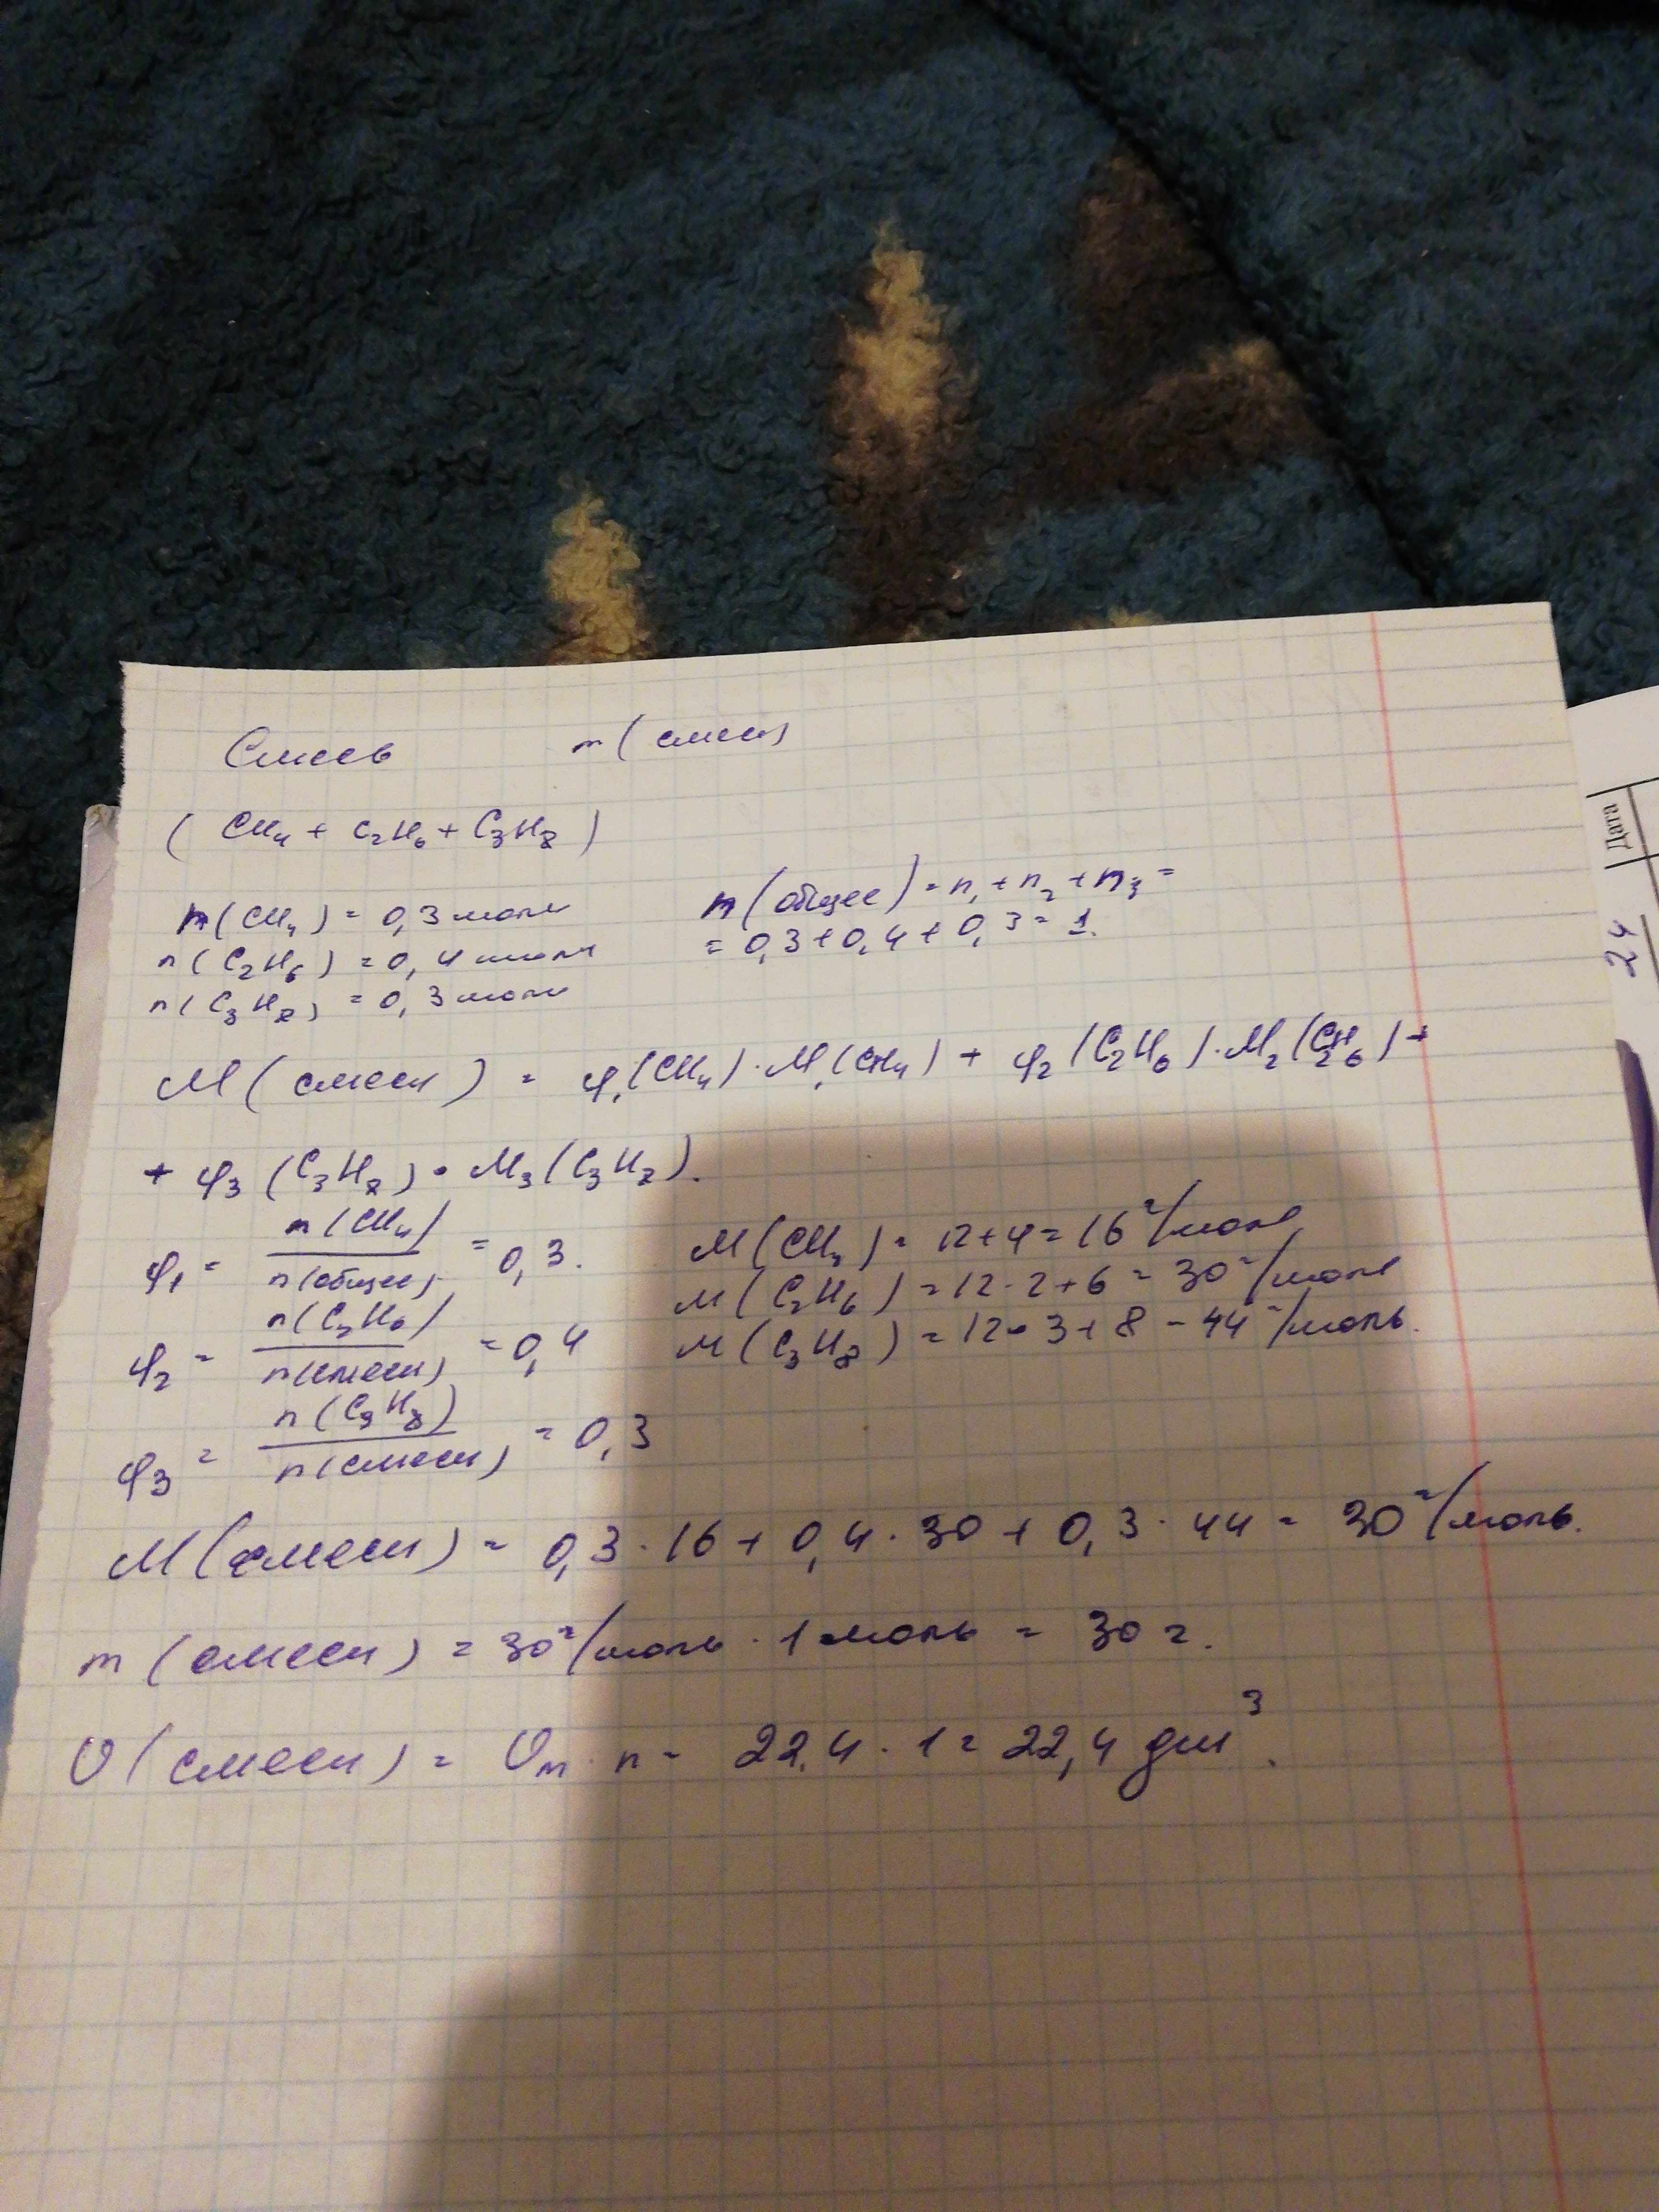 Смесь m(смеси)
(CH₄ + C₂H₆ + C₃H₈)
n(CH₄) = 0,3 моль
n(C₂H₆) = 0,4 моль
n(C₃H₈) = 0,3 моль
n(общее) = n₁ + n₂ + n₃ =
= 0,3 + 0,4 + 0,3 = 1.
M(смеси) = φ₁(CH₄) · M₁(CH₄) + φ₂(C₂H₆) · M₂(C₂H₆) +
+ φ₃(C₃H₈) · M₃(C₃H₈).
φ₁ = n(CH₄) / n(общее) = 0,3.
φ₂ = n(C₂H₆) / n(смеси) = 0,4
φ₃ = n(C₃H₈) / n(смеси) = 0,3
M(CH₄) = 12 + 4 = 16 г/моль
M(C₂H₆) = 12 · 2 + 6 = 30 г/моль
M(C₃H₈) = 12 · 3 + 8 = 44 г/моль.
M(смеси) = 0,3 · 16 + 0,4 · 30 + 0,3 · 44 = 30 г/моль.
m(смеси) = 30 г/моль · 1 моль = 30 г.
V(смеси) = Vm · n = 22,4 · 1 = 22,4 дм³.
Дата
24